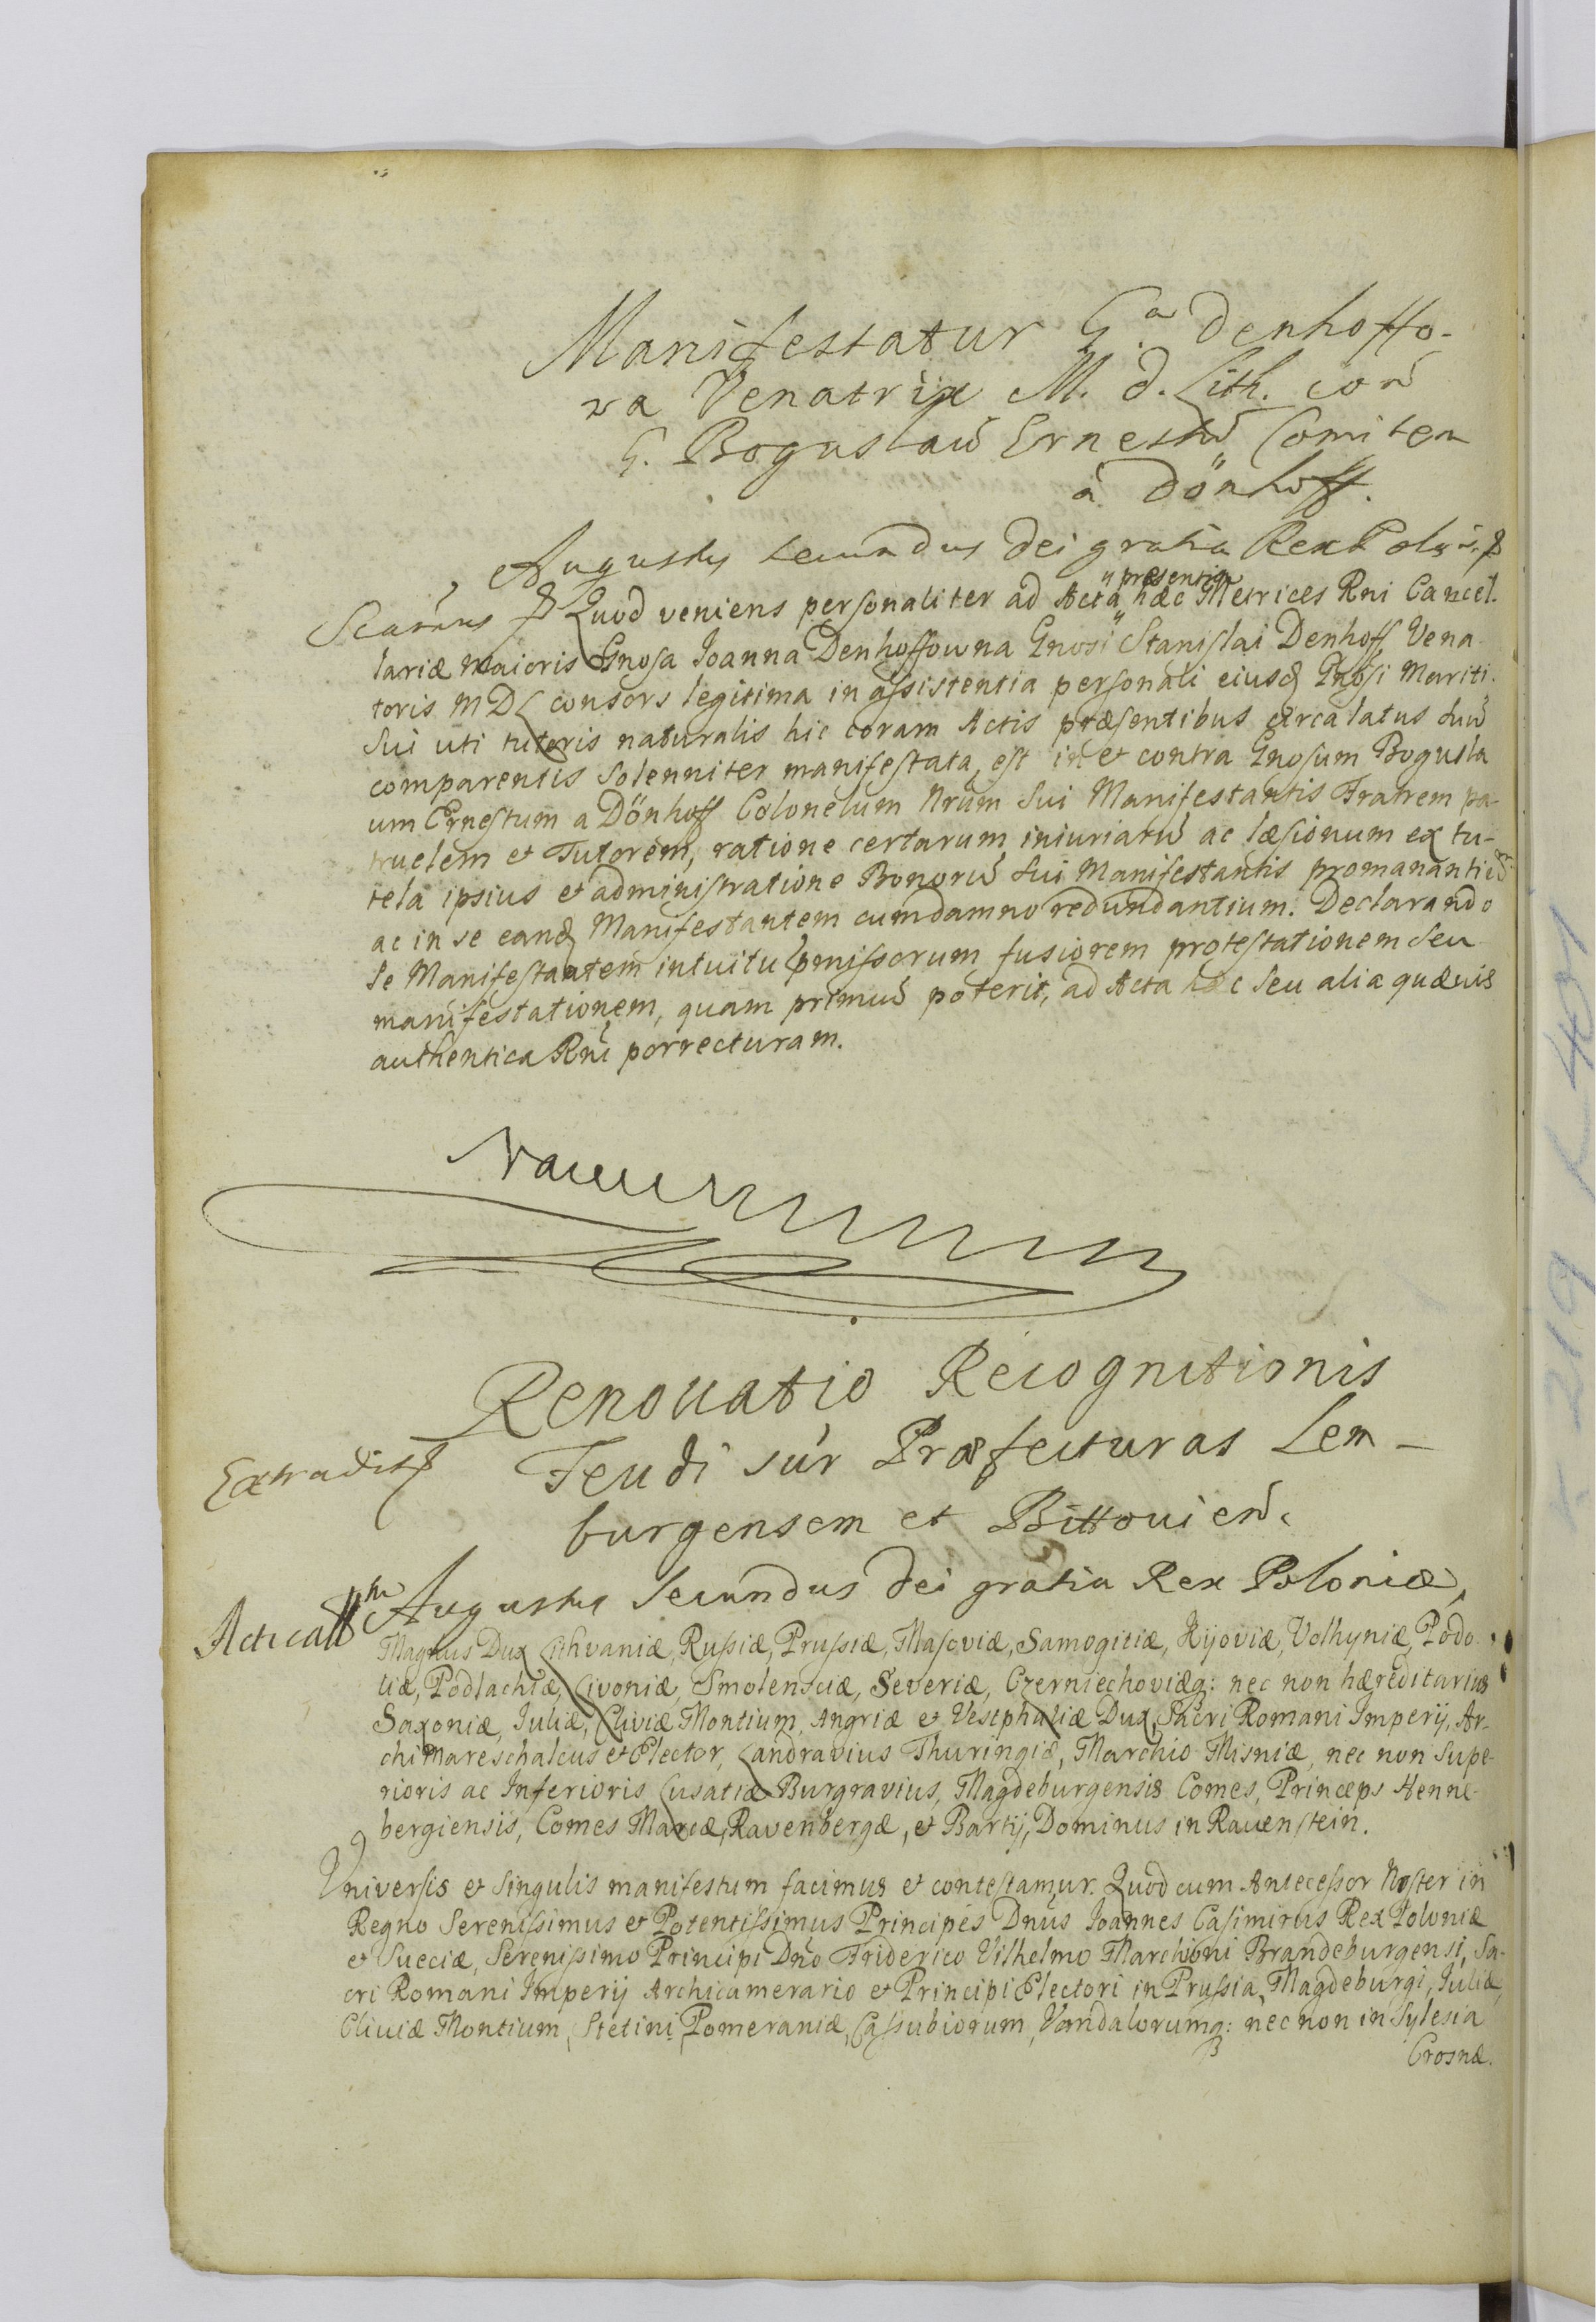 Manifestatur G.a Denhoffo-
wa Venatrix M. D. Lith. con
G. Boguslaŭ Ernestŭ Comitem
à Dönhoff.
Augustus Secundus Dei gratia Rex Polon:
Quod veniens personaliter ad Acta præsentia hæc Metrices Rni Cancel-
lariæ maioris Gnosa Joanna Denhoffowna Gnosi Stanislai Denhoff, Vena-
toris MDL consors legitima in assistentia personali eiusq Gnosi Mariti
sui uti tutoris naturalis hic coram Actis præsentibus circa latus suŭ
comparentis solenniter manifestata est in et contra Gnosum Bogusla
um Ernestum a Dönhoff Colonelum Nrum sui Manifestantis Fratrem pa-
truelem et Tutorem, ratione certarum iniuriarŭ ac læsionum ex tu-
tela ipsius et administratione Bonorŭ sui Manifestantis promanantiŭ
ac in se eanq Manifestantem cum damno redundantium. Declarando
se Manifestantem intuitu pmissorum fusiorem protestationem seu
manifestationem, quam primŭ poterit, ad Acta hæc seu alia quævis
authentica Rni porrecturam.
Renouatio Recognitionis
Extradit
Feudi sūr Præfecturas Lem-
burgensem et Bittouien.
Augustus Secundus Dei gratia Rex Poloniæ,
Magnus Dux Lithvaniæ, Russiæ, Prussiæ, Masoviæ, Samogitiæ, Kijoviæ, Volhyniæ, Podo-
liæ, Podlachiæ, Livoniæ, Smolensciæ, Severiæ, Czerniechoviæq: nec non hæreditarius
Saxoniæ, Juliæ, Cliviæ Montium, Angriæ et Vestphaliæ Dux, Sacri Romani Imperij, Ar-
chimareschalcus et Elector, Landravius Thuringiæ, Marchio Misniæ, nec non Supe-
rioris ac Inferioris Lusatiæ Burgravius, Magdeburgensis Comes, Princeps Henne-
bergiensis, Comes Marcæ, Ravenbergæ, et Bartij, Dominus in Rauenstein.
Vniversis et singulis manifestum facimus et contestamur. Quod cum Antecessor Noster in
Regno Serenissimus et Potentissimus Principes Dnus Joannes Casimirus Rex Poloniæ
et Sueciæ, Serenissimo Principi Dno Friderico Vilhelmo Marchioni Brandeburgensi, Sa-
cri Romani Imperij Archicamerario et Principi Electori in Prussia, Magdeburgi, Juliæ,
Cliuiæ Montium, Stetini, Pomeraniæ, Cassubiorum, Vandalorumq: nec non in Sylesia
Crosnæ.